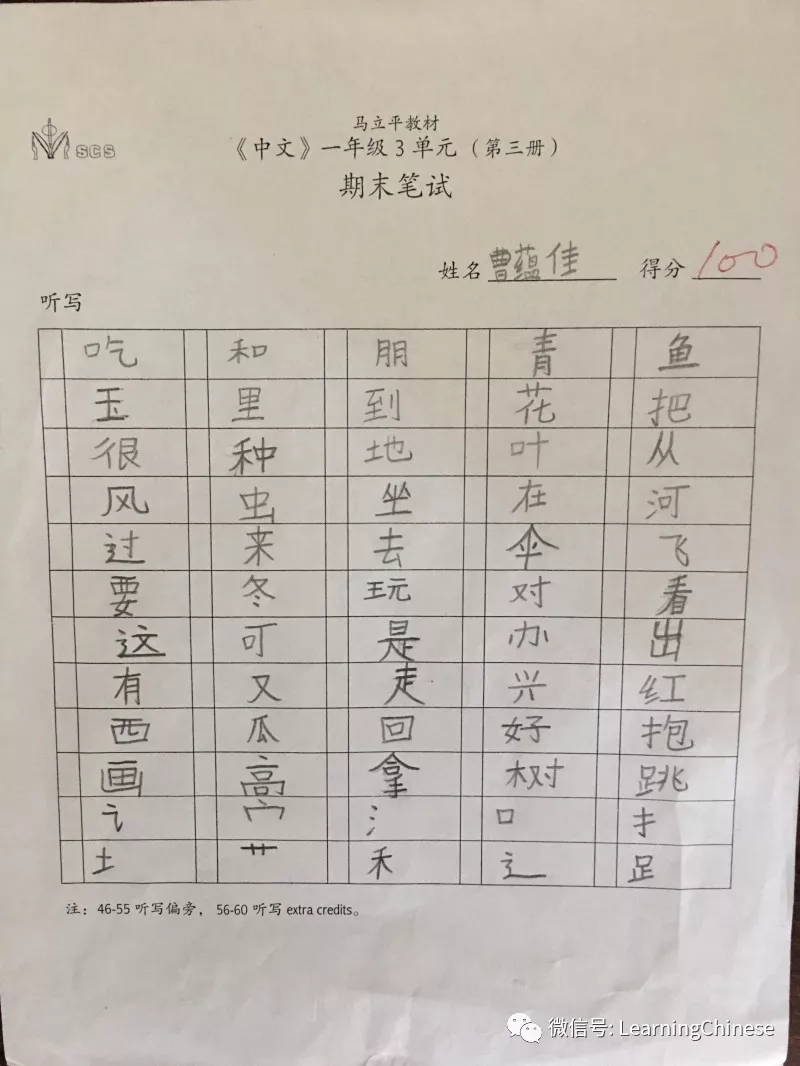 SCS
马立平教材
《中文》一年级3单元(第三册)
期末笔试
姓名 曹蕴佳 得分 100
听写
吃 和 朋 青 鱼
玉 里 到 花 把
很 种 地 叶 从
风 虫 坐 在 河
过 来 去 伞 飞
要 冬 玩 对 看
这 可 是 办 出
有 又 走 兴 红
西 瓜 回 好 抱
画 高 拿 树 跳
讠 宀 氵 口 扌
土 艹 禾 辶 足
注:46-55 听写偏旁,56-60 听写 extra credits。
微信号: LearningChinese